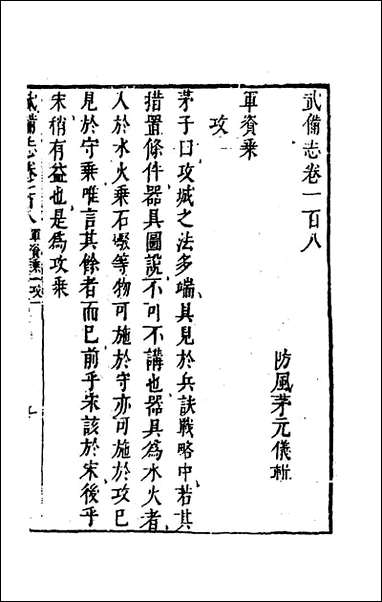 武備志卷一百八
防風茅元儀輯
軍資乘
攻
茅子曰攻城之法多端具見於兵訣戰略中若其
措置條件器具圖說不可不講也器具為水火者
入於水火乘石礮等物可施於守亦可施於攻已
見於守乘唯言其餘者而已前乎宋該於宋後乎
宋稍有益也是為攻乘
武備志卷一百八 軍資乘 攻一